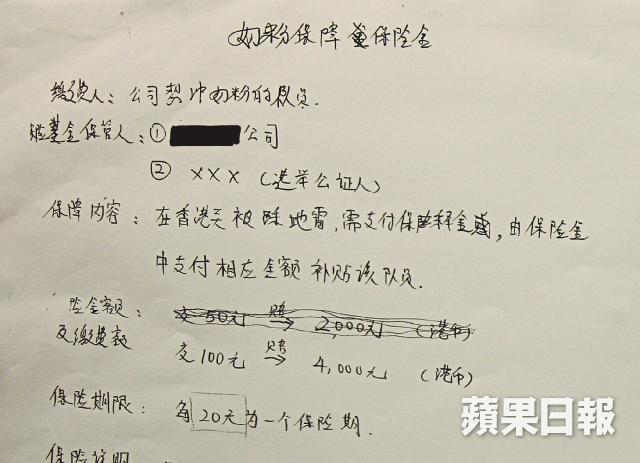 奶粉保障保险金
缴费人：公司契中奶粉的队员.
基金保管人：① 公司
② XXX （选举公证人）
保障内容：在香港关被踩地雷，需支付保险金，由保险金
中支付相应金额补贴该队员.
险金额：
交50元 赔→ 2,000元 （港币）
及缴费额
交100元 赔→ 4,000元 （港币）
保险期限：每20元为一个保险期.
保险说明
蘋果日報